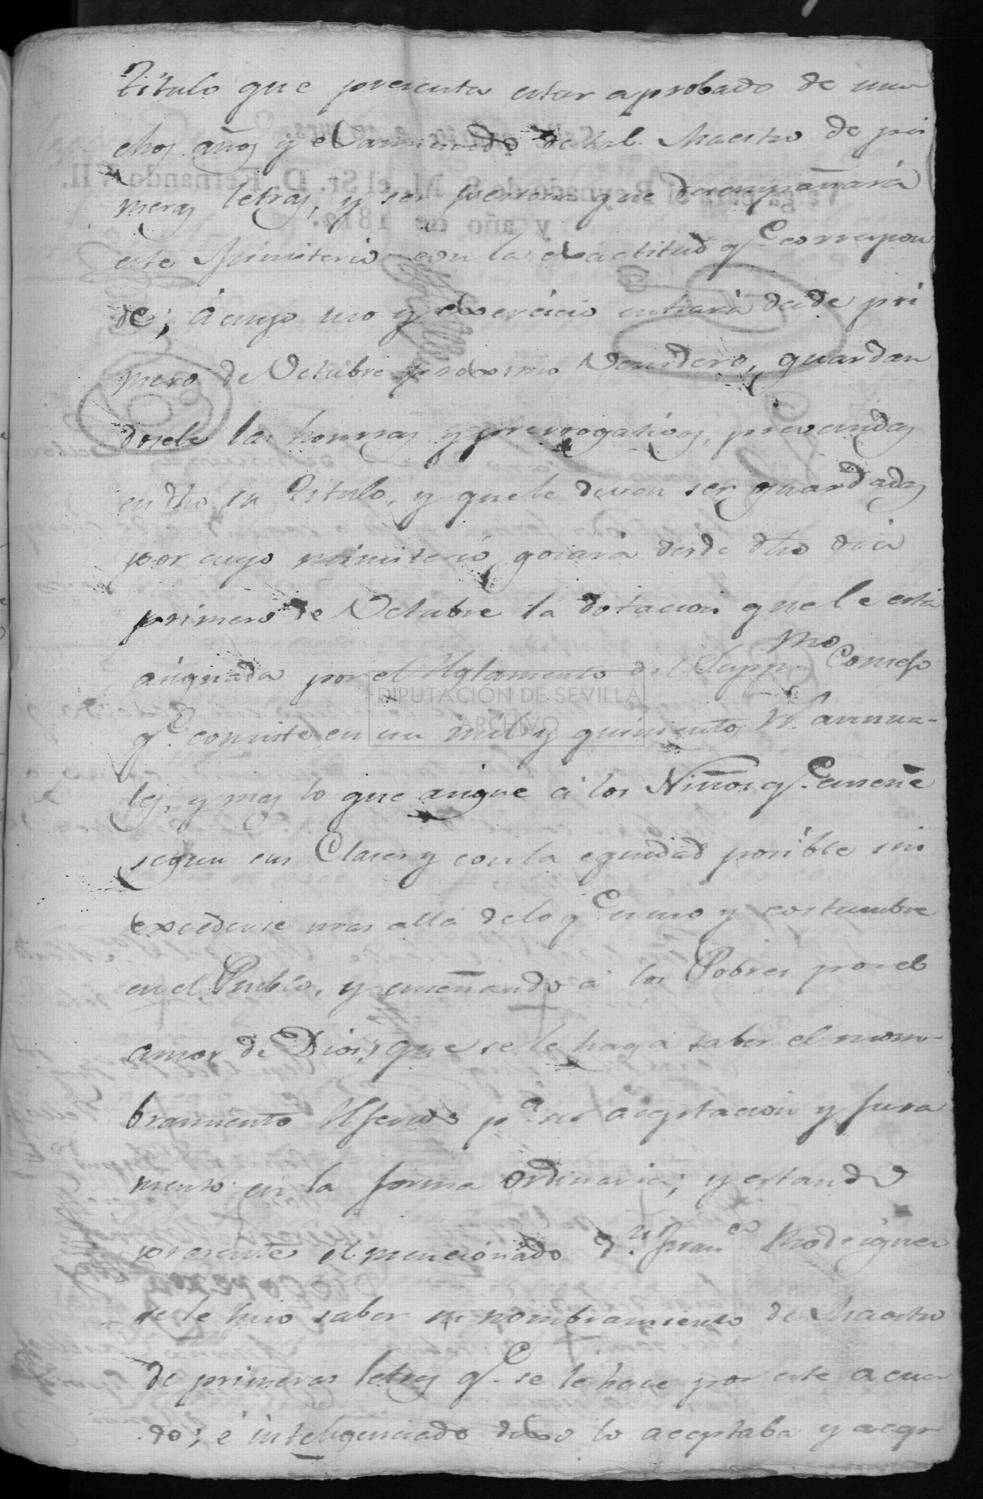 titulo que precenta estar aprobado de mu
chos años y examinado de tal Maestro de pri
meras letras, y ser perzona que desempeñará
este Ministerio con la exactitud qe. correspon
de; á cuyo uso y exercicio entrará desde pri
mero de Octubre proximo Venidero, guardan
dosele las honrras y prerrogativas, prevenidas
en dho su titulo, y que le deven ser guardadas
por cuyo ministerio gosará desde dho dia
primero de Octubre la dotacion que le está
asignada por el Reglamento del Supmo. Consejo
qe. conciste en un mil y quinientos rs. annua-
les, y mas lo que asigne á los Niños qe. enseñe
segun sus Clases y con la equidad posible sin
excederse mas allá de lo qe. es uso y costumbre
en el Pueblo, y enseñando á los Pobres por el
amor de Dios; que se le haga saber el nom-
bramiento pa. su aceptacion y jura
mento en la forma ordinaria; y estando
presente el mencionado Dn. Franco. Rodriguez
se le hizo saber su nombramiento de Maestro
de primeras letras qe. se le hace por este acuer
do; é inteligenciado dixo lo aceptaba y acep
DIPUTACIÓN DE SEVILLA
ARCHIVO